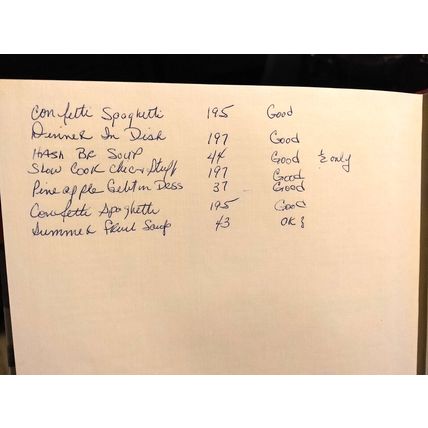 Confetti Spaghetti 195 Good
Dinner In Dish 197 Good
HASH BR SOUP 44 Good ½ only
Slow Cook Chic & Stuff 197 Good
Pineapple Gelatin Dess 37 Good
Confetti Spaghetti 195 Good
Summer Fruit Soup 43 OK